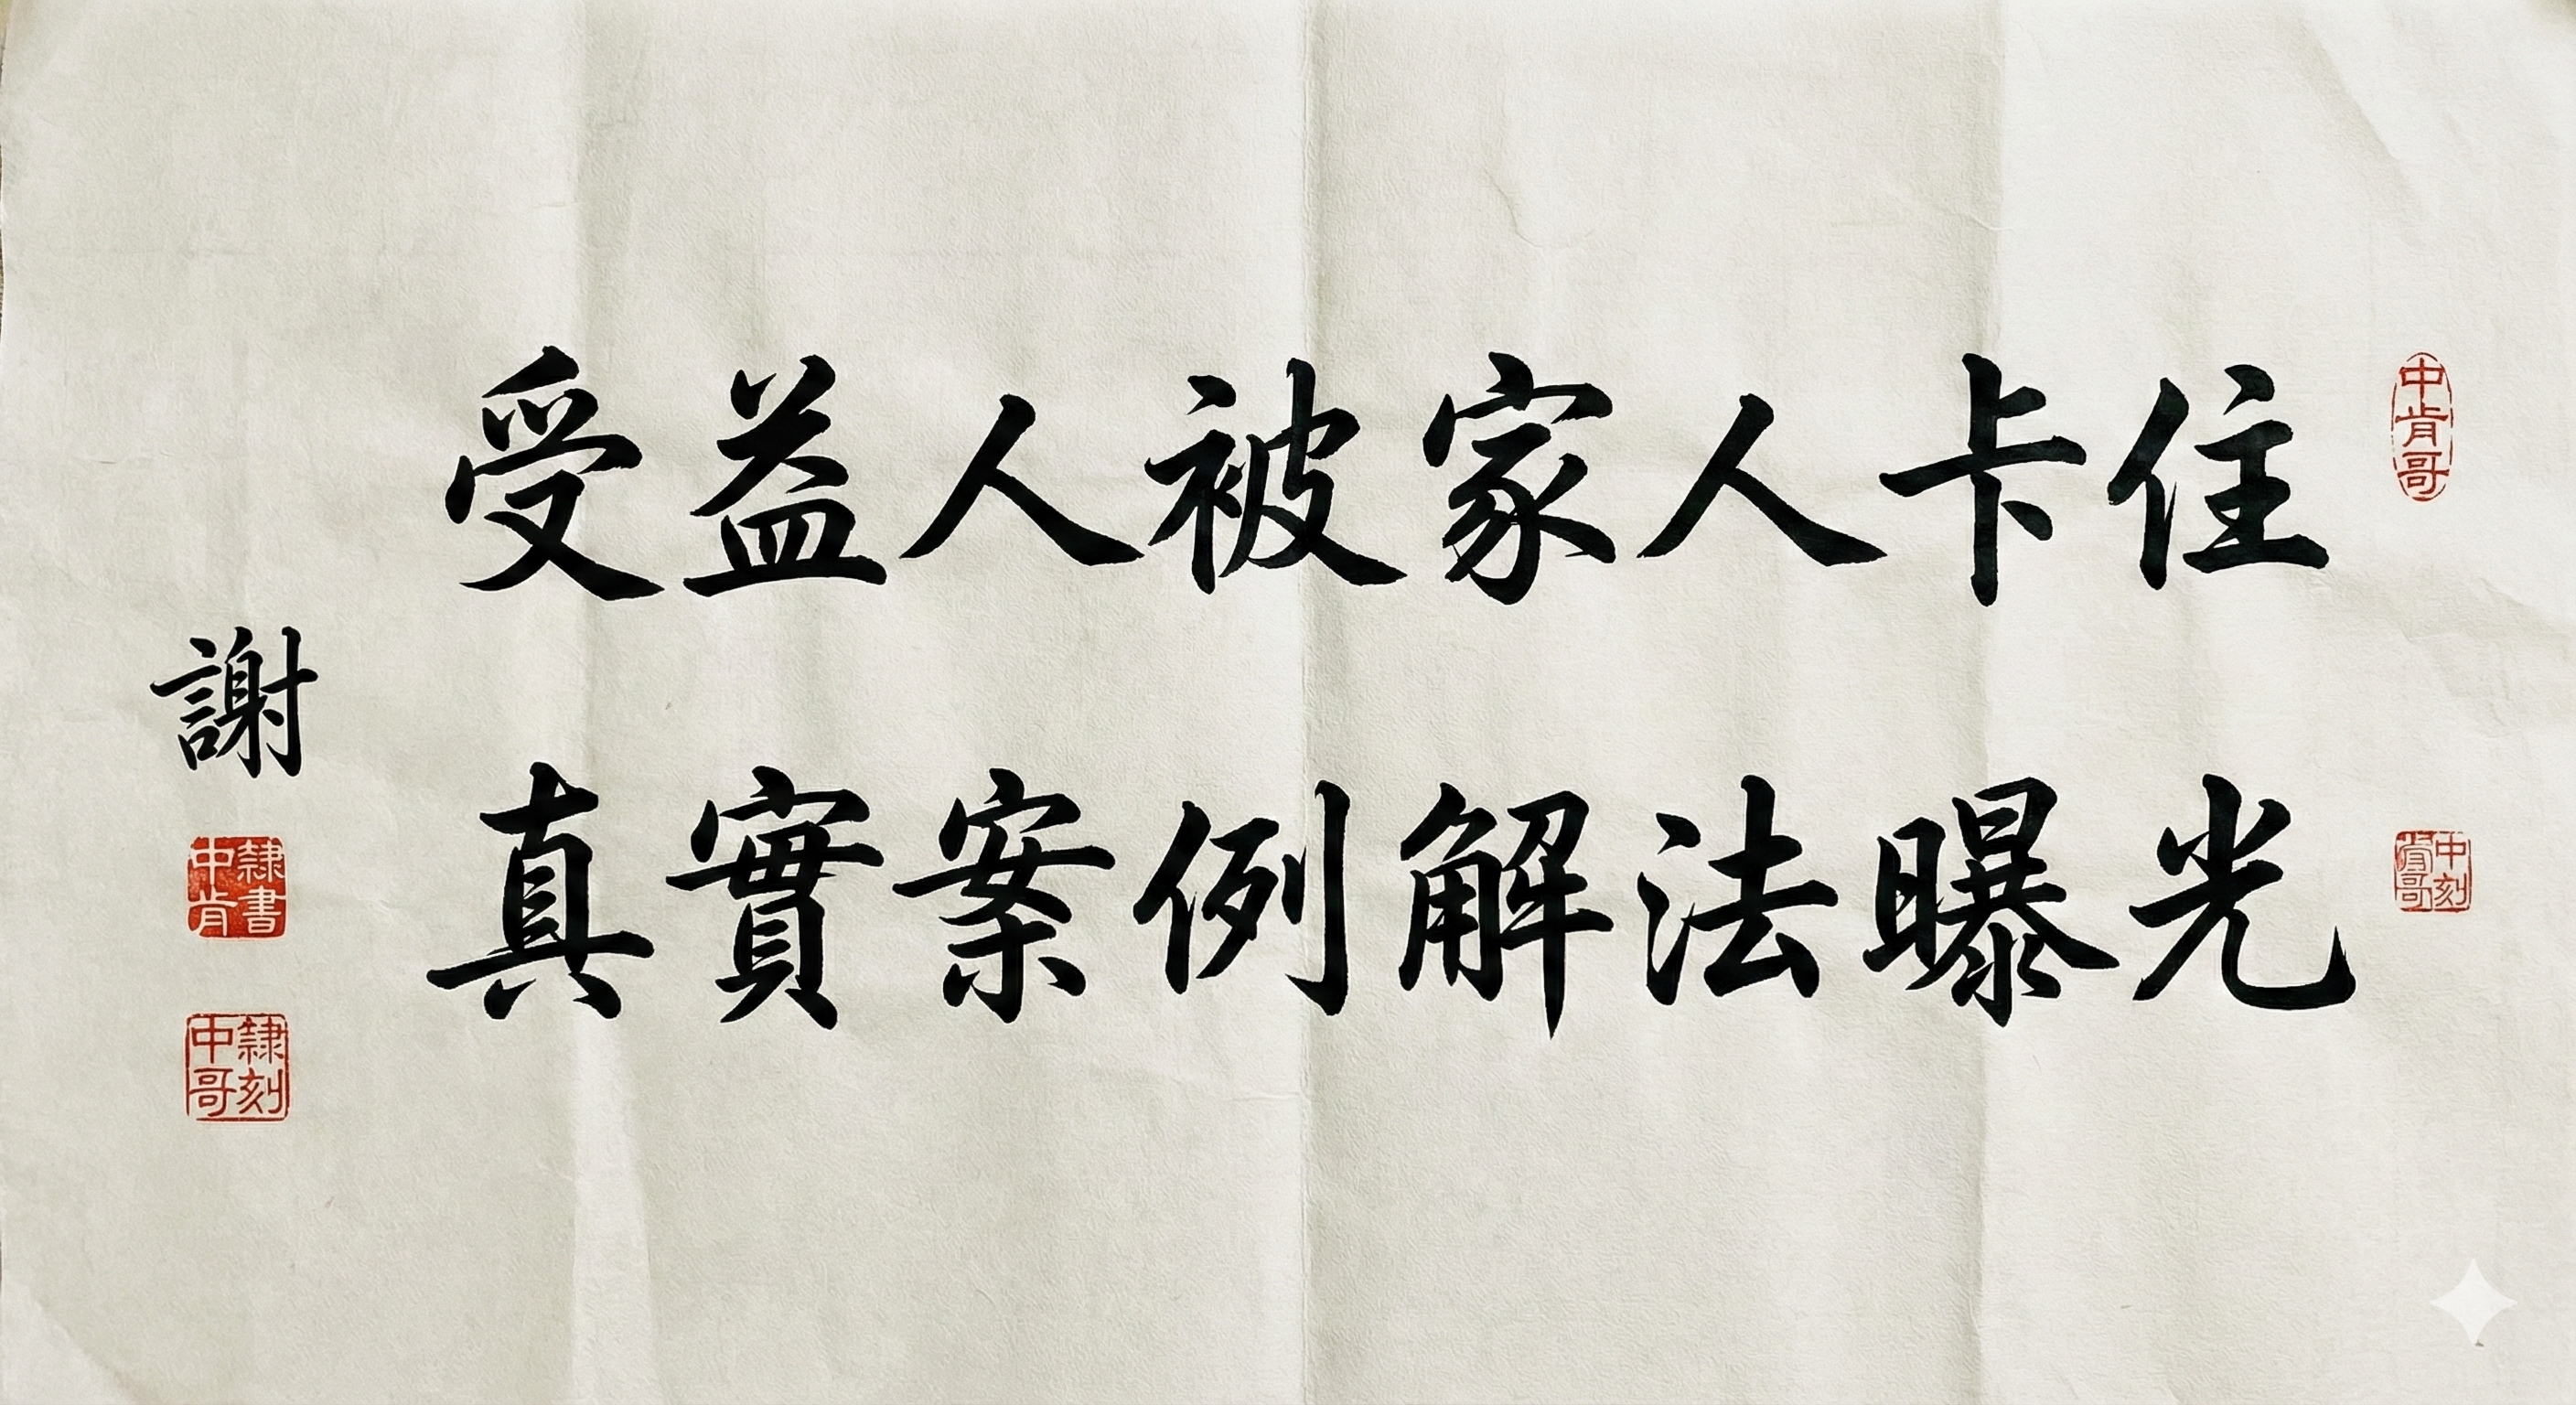 受益人被家人卡住
真實案例解法曝光
謝
中肯哥
隸書
中肯
隸刻
中哥
中刻